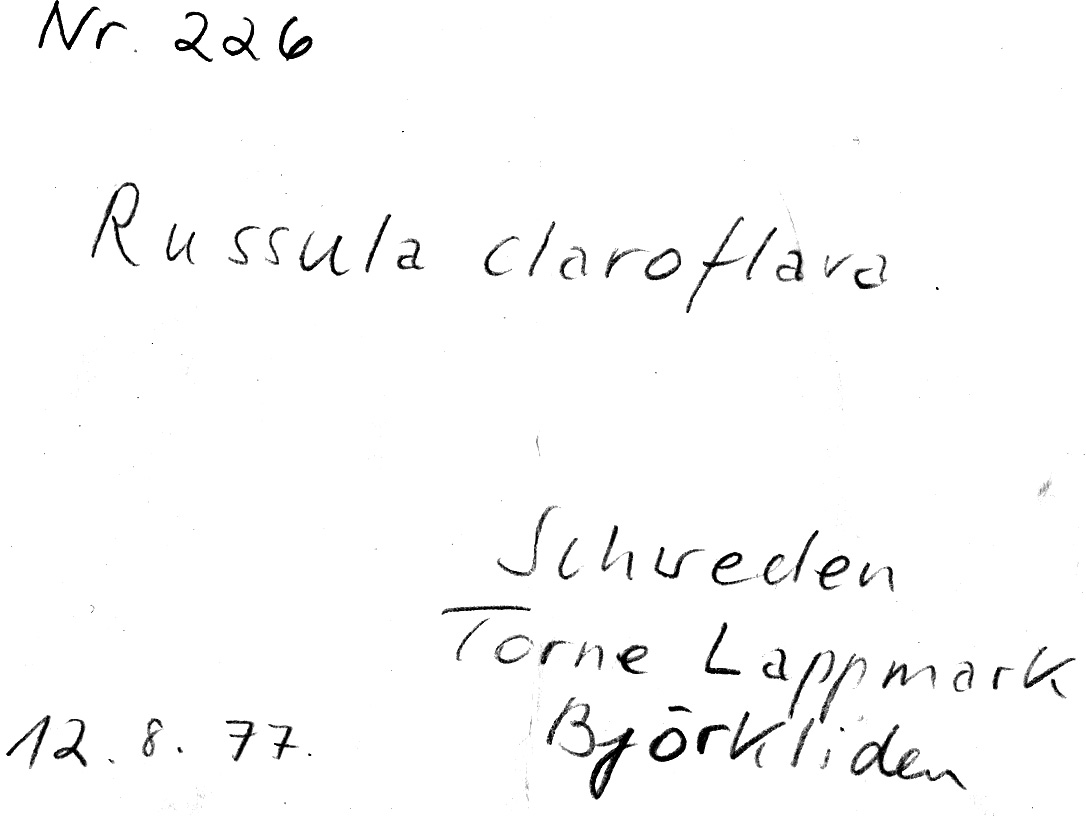 Nr. 226
Russula claroflava.
Schweden
Torne Lappmark
12.8.77. Björkliden